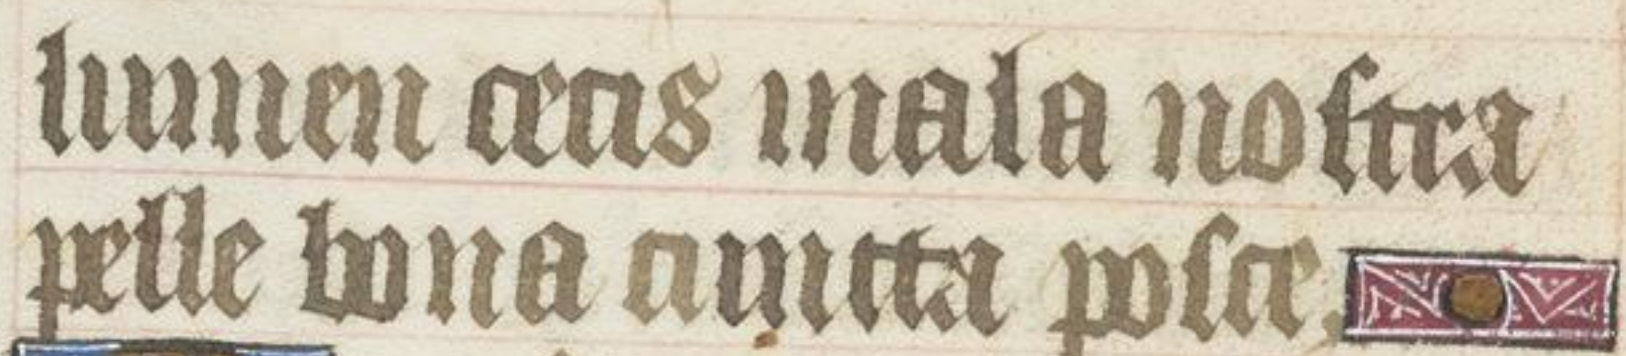 lumen cecis mala nostra
pelle bona cuncta posce.